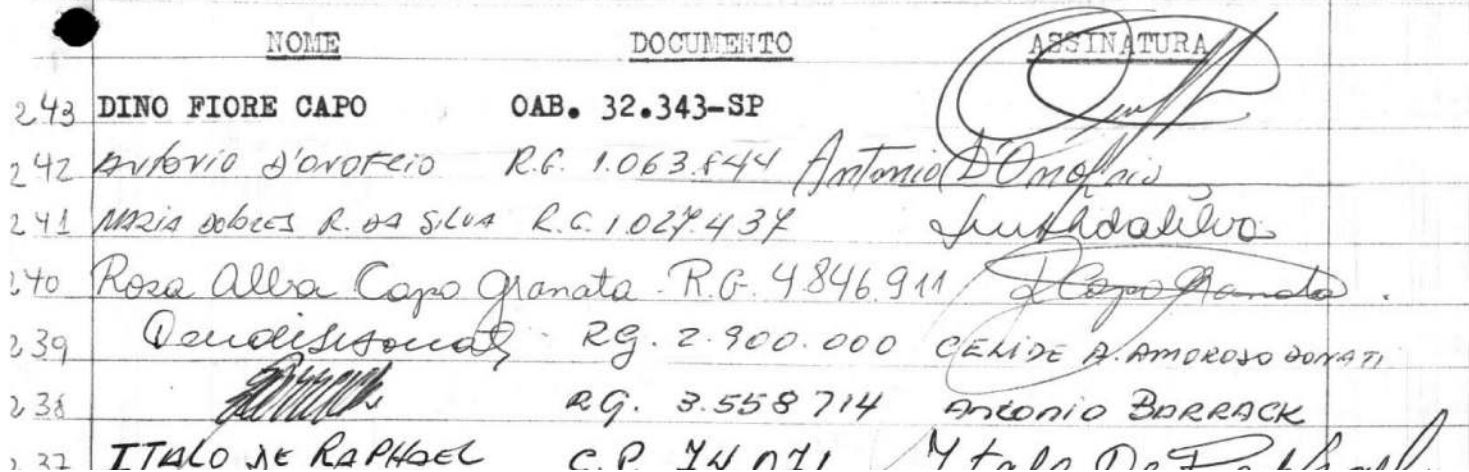 NOME DOCUMENTO ASSINATURA
243 DINO FIORE CAPO OAB. 32.343-SP
242 Antonio D'Onofrio R.G. 1.063.844 Antonio D'Onofrio
241 MARIA DOLORES R. DA SILVA R.G. 1.027.437
240 Rosa Alba Capo Granata R.G. 4846.911 R Capo Granata
239 RG. 2.900.000 CENIDE A. AMOROSO DONATI
238 RG. 3.558714 Antonio BARRACK
237 ITALO DE RAPHAEL C.P. 74071 Italo De Raphael